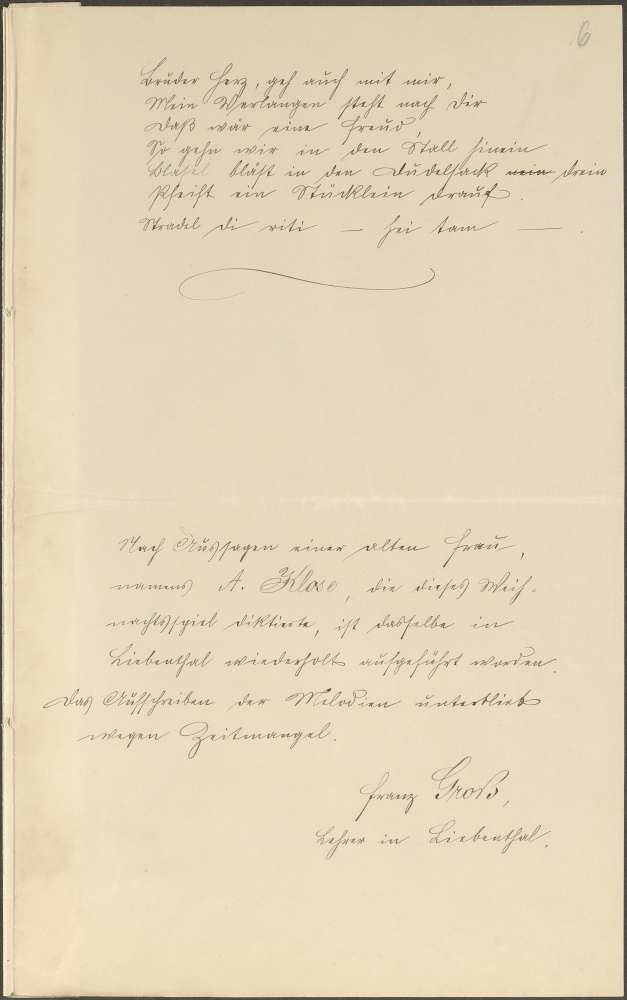 6
Bruder Herz, geh auch mit mir,
Mein Verlangen steht nach Dir
Daß wär eine Freud,
So gehn wir in den Stall hinein
Blasel blåst in den Dudelsack nein drein
Pfeift ein Stücklein drauf.
Stradel di riti — hei tam — .
Nach Aussagen einer alten Frau,
namens A. Klose, die dieses Weih-
nachtsspiel diktierte, ist dasselbe in
Liebenthal wiederholt aufgeführt worden.
Das Aufschreiben der Melodien unterblieb
wegen Zeitmangel.
Franz Groß,
Lehrer in Liebenthal.